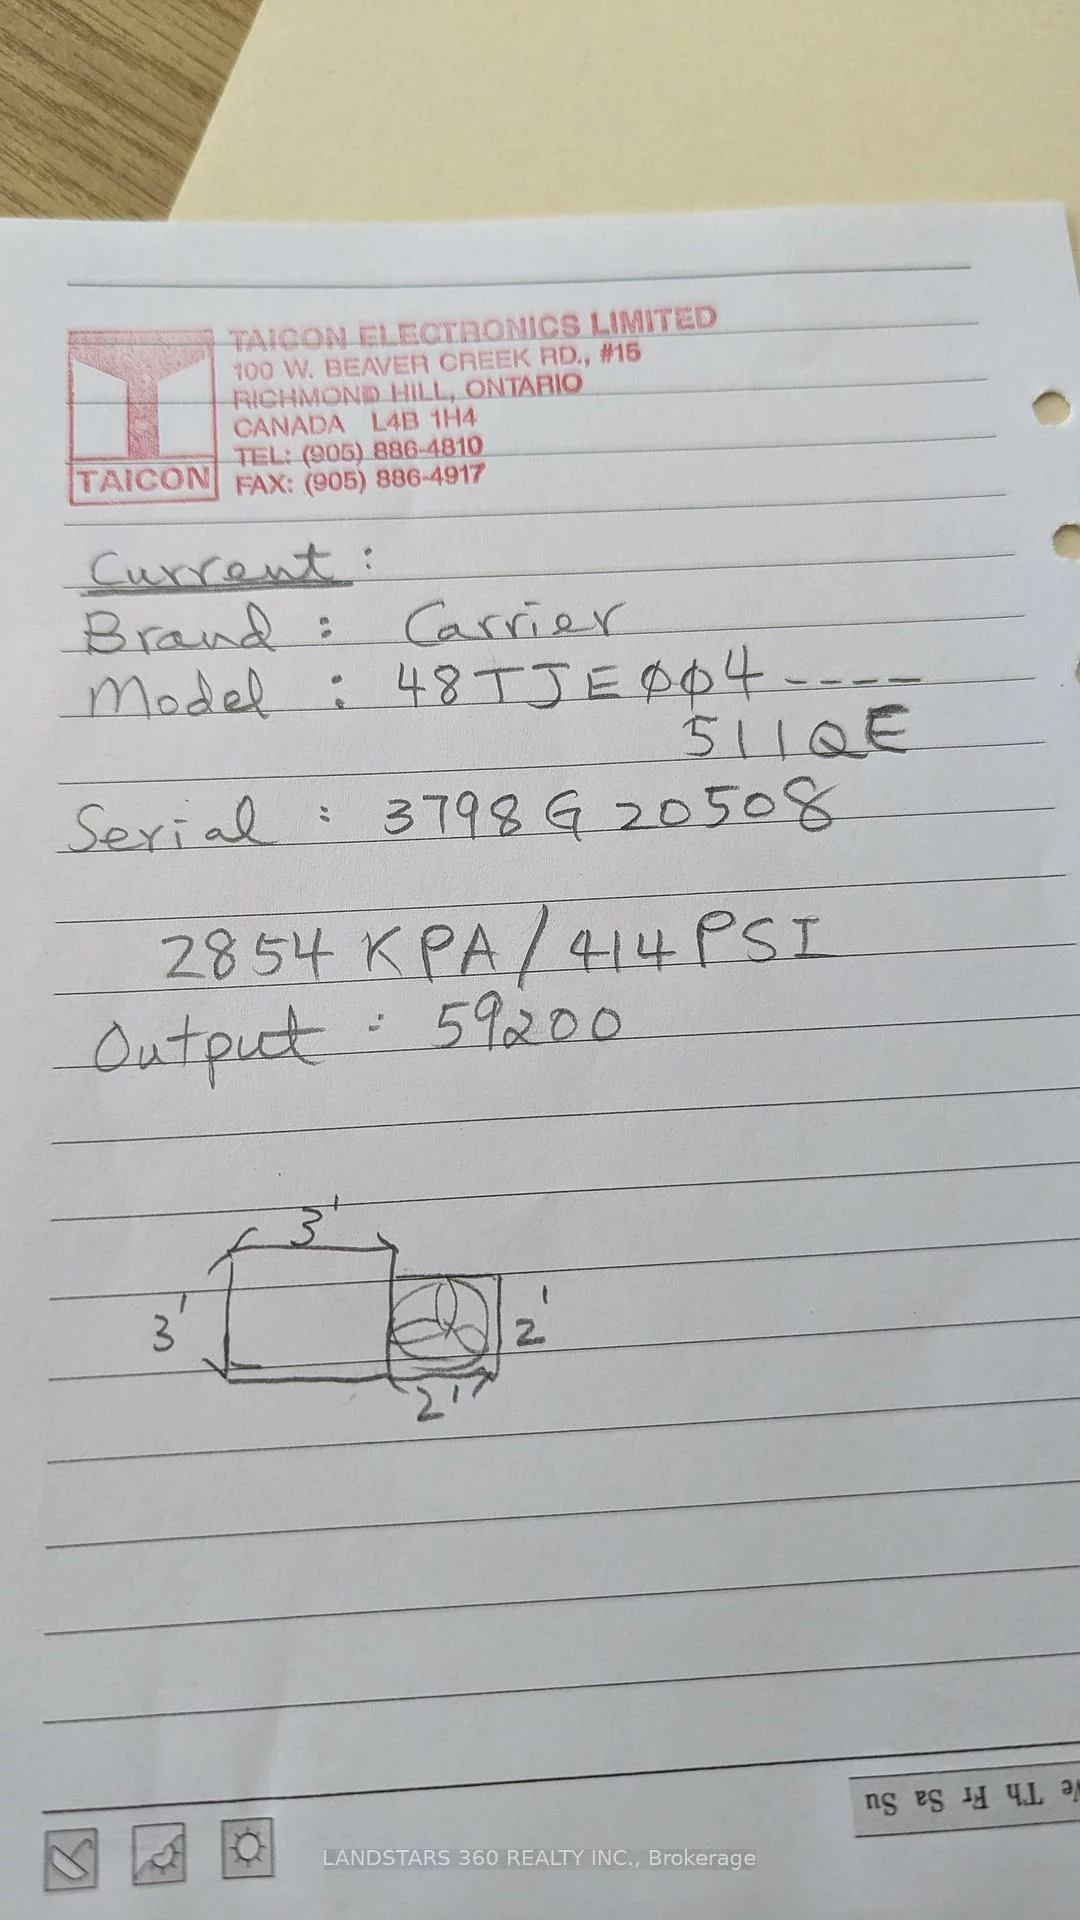 TAICON ELECTRONICS LIMITED
100 W. BEAVER CREEK RD., #15
RICHMOND HILL, ONTARIO
CANADA L4B 1H4
TEL: (905) 886-4810
FAX: (905) 886-4917
TAICON
Current:
Brand : Carrier
Model : 48TJE004----
511QE
Serial : 3798G20508
2854 KPA/414PSI
Output : 59200
3'
3'
2'
2'
We Th Fr Sa Su
LANDSTARS 360 REALTY INC., Brokerage